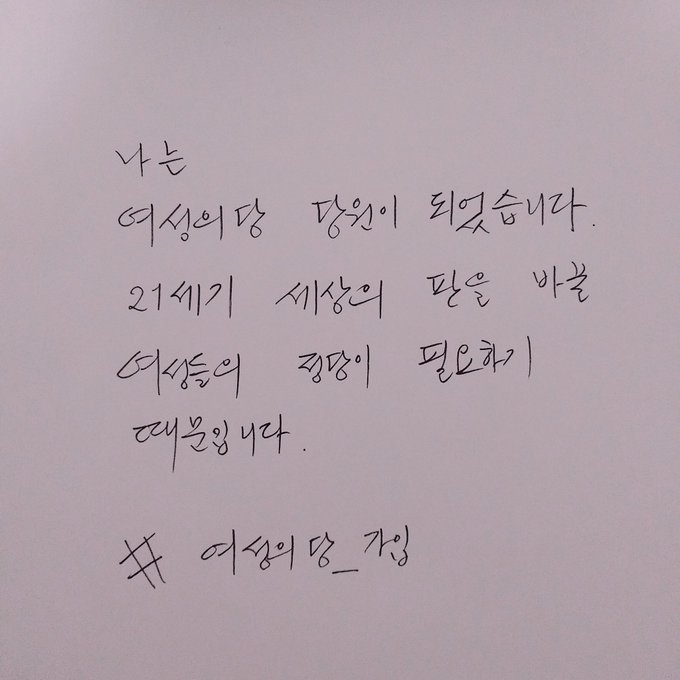 나는
여성의당 당원이 되었습니다.
21세기 세상의 판을 바꿀
여성들의 정당이 필요하기
때문입니다.
# 여성의당_가입